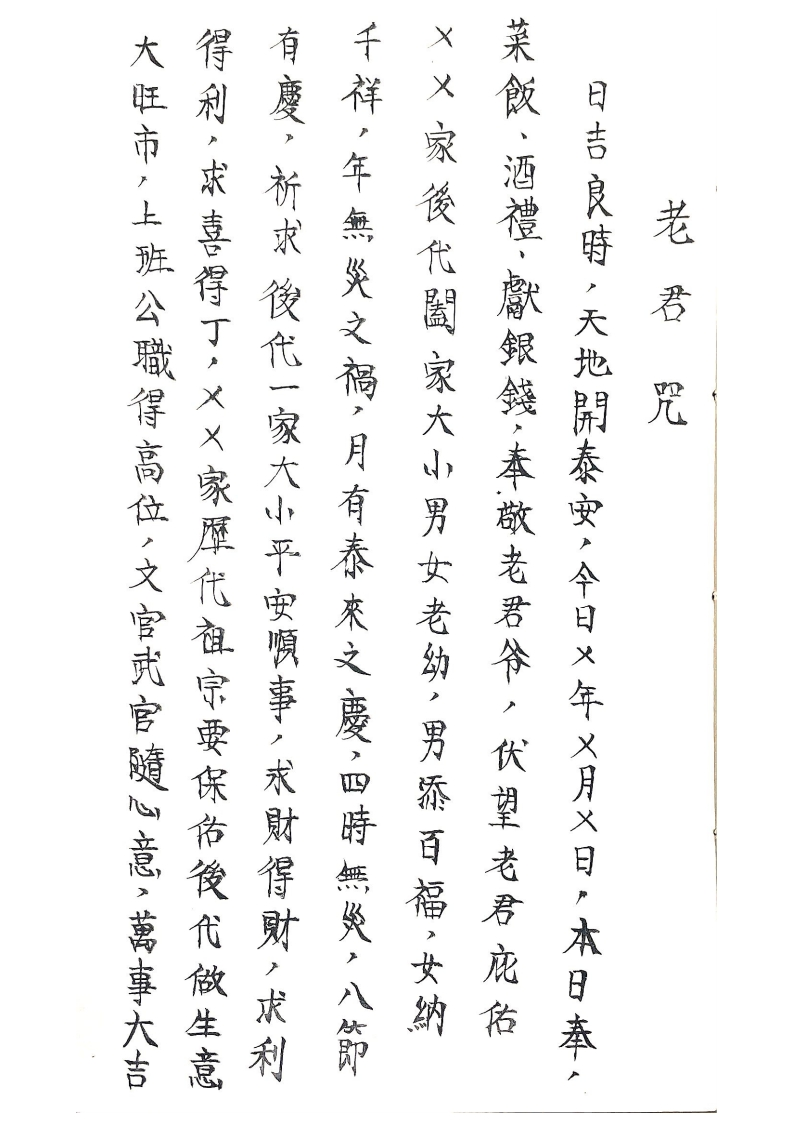 老君咒
日吉良時，天地開泰安，今日㐅年㐅月㐅日，本日奉，
菜飯、酒禮、獻銀錢，奉敬老君爷，伏望老君庇佑
㐅㐅家後代闔家大小男女老幼，男添百福，女納
千祥，年無災文禍，月有泰來文慶，四時無災，八節
有慶，祈求後代一家大小平安順事，求財得財，求利
得利，求喜得丁，㐅㐅家歷代祖宗要保佑後代做生意
大旺市，上班公職得高位，文官武官隨心意，萬事大吉